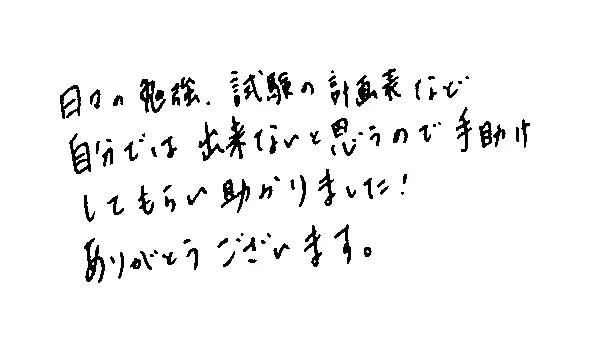 日々の勉強、試験の計画表など
自分では出来ないと思うので手助け
してもらい助かりました！
ありがとうございます。